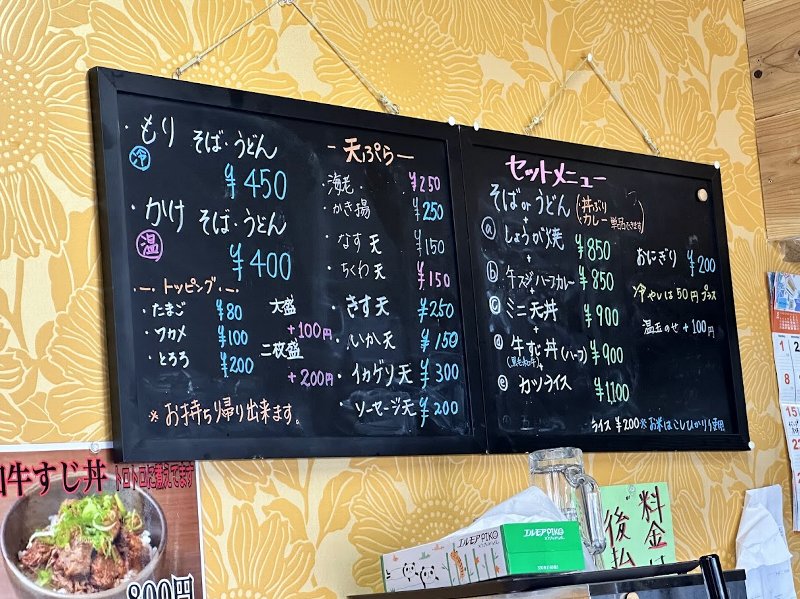 ・もり そば・うどん
冷
¥450
・かけ そば・うどん
温
¥400
ー・トッピング・ー
・たまご ¥80
・ワカメ ¥100
・とろろ ¥200
大盛
+100円
二枚盛
+200円
※お持ち帰り出来ます。
ー天ぷらー
・海老 ¥250
・かき揚 ¥250
・なす天 ¥150
・ちくわ天 ¥150
・きす天 ¥250
・いか天 ¥150
・イカゲソ天 ¥300
・ソーセージ天 ¥200
セットメニュー
そばorうどん (丼ぶり カレー 単品できます)
+
ⓐ しょうが焼 ¥850
+
ⓑ 牛スジハーフカレー ¥850
ⓒ ミニ天丼 ¥900
+
ⓓ 牛すじ丼(ハーフ) ¥900
(黒毛和牛)
ⓔ カツライス ¥1,100
おにぎり ¥200
冷やしは50円プラス
温玉のせ +100円
ライス ¥200 ※お米はこしひかり使用
牛すじ丼 トロトロに煮えてます
800円
エルモアPIKO
エルモアPIKO
料金は
後払
1
8
15